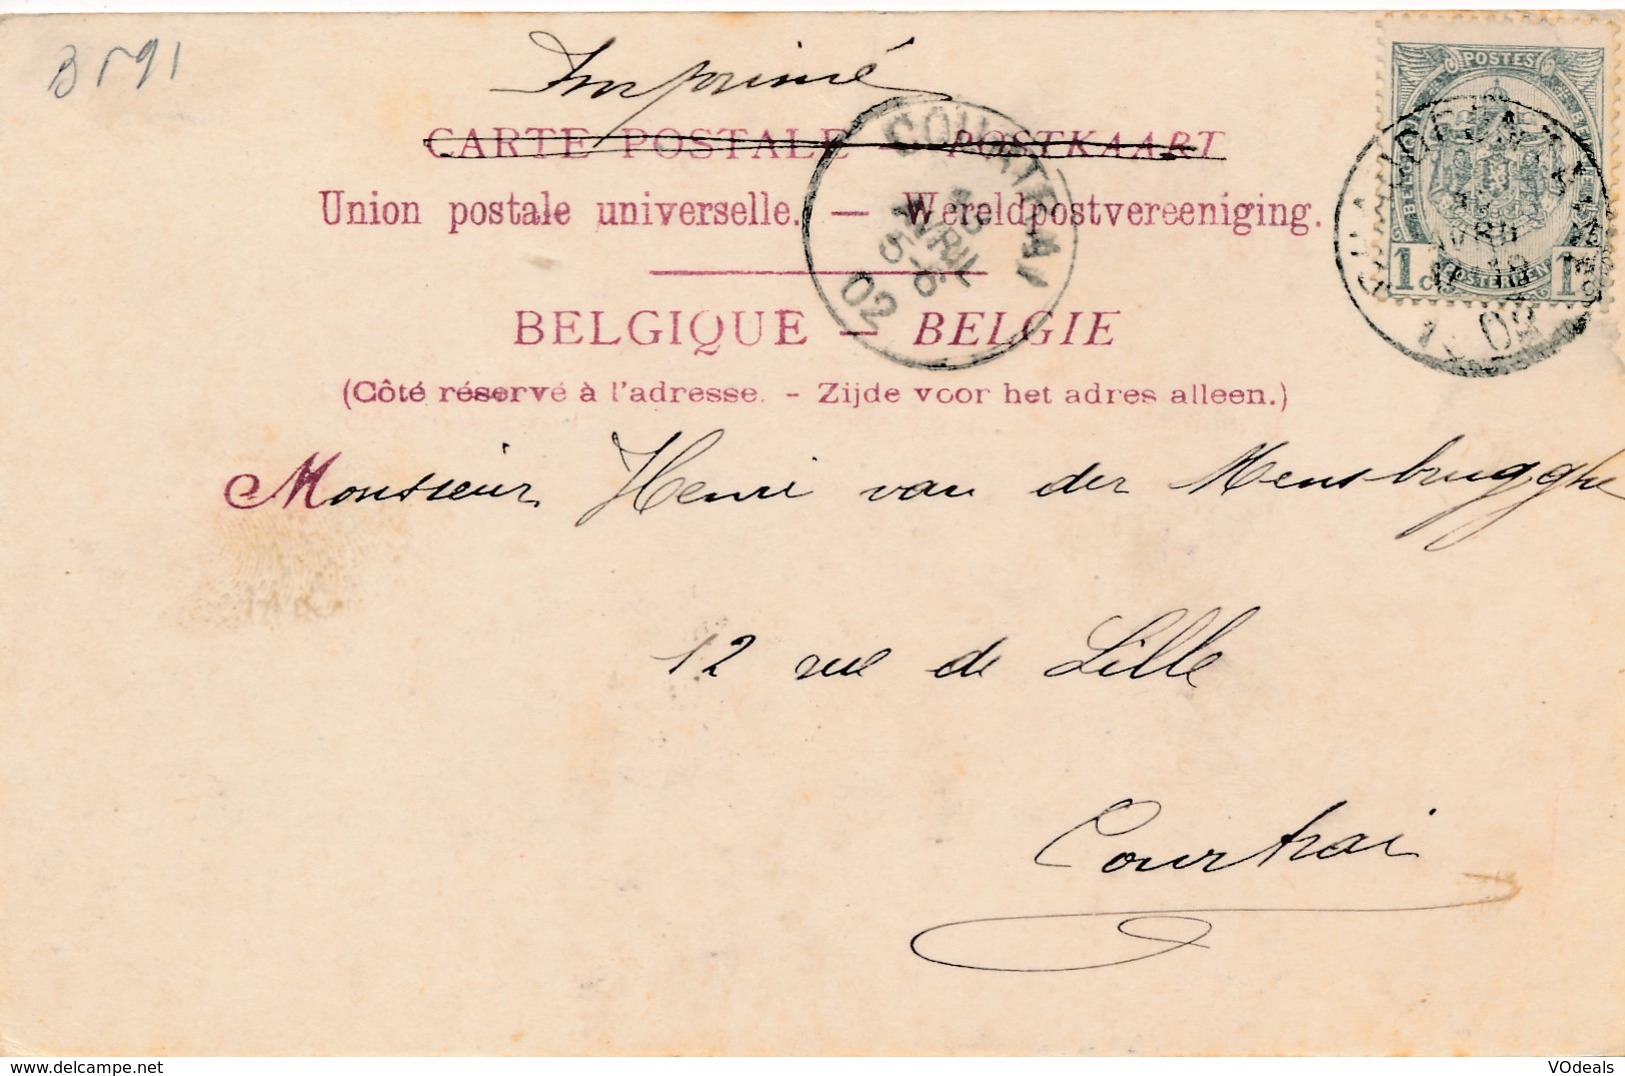 B 591
Imprimé
CARTE POSTALE — POSTKAART
Union postale universelle. — Wereldpostvereeniging.
BELGIQUE — BELGIE
(Côté réservé à l'adresse. - Zijde voor het adres alleen.)
COURTRAI
AVRIL
5-6
02
POSTES
1c
1c
02
Monsieur Henri van der Mensbrugghe
12 rue de Lille
Courtrai
VOdeals